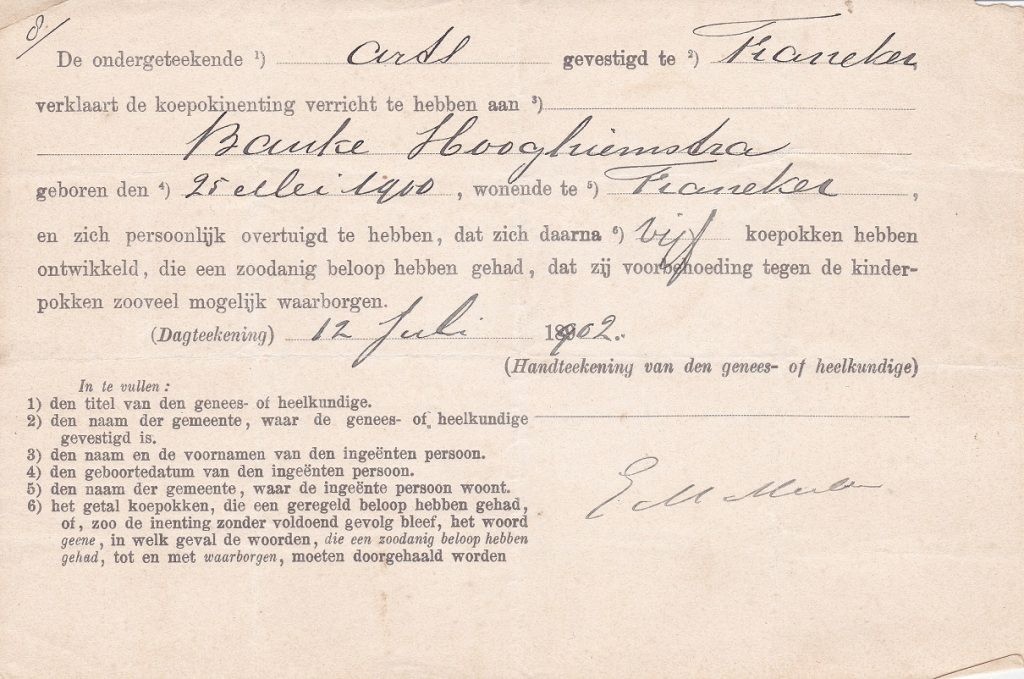 8/
De ondergeteekende ¹) arts gevestigd te ²) Franeker,
verklaart de koepokinenting verricht te hebben aan ³)
Bauke Hooghiemstra
geboren den ⁴) 25 Mei 1900, wonende te ⁵) Franeker,
en zich persoonlijk overtuigd te hebben, dat zich daarna ⁶) vijf koepokken hebben
ontwikkeld, die een zoodanig beloop hebben gehad, dat zij voorbehoeding tegen de kinder-
pokken zooveel mogelijk waarborgen.
(Dagteekening) 12 Juli 1902.
(Handteekening van den genees- of heelkundige)
In te vullen:
1) den titel van den genees- of heelkundige.
2) den naam der gemeente, waar de genees- of heelkundige
gevestigd is.
3) den naam en de voornamen van den ingeënten persoon.
4) den geboortedatum van den ingeënten persoon.
5) den naam der gemeente, waar de ingeënte persoon woont.
6) het getal koepokken, die een geregeld beloop hebben gehad,
of, zoo de inenting zonder voldoend gevolg bleef, het woord
geene, in welk geval de woorden, die een zoodanig beloop hebben
gehad, tot en met waarborgen, moeten doorgehaald worden
E M